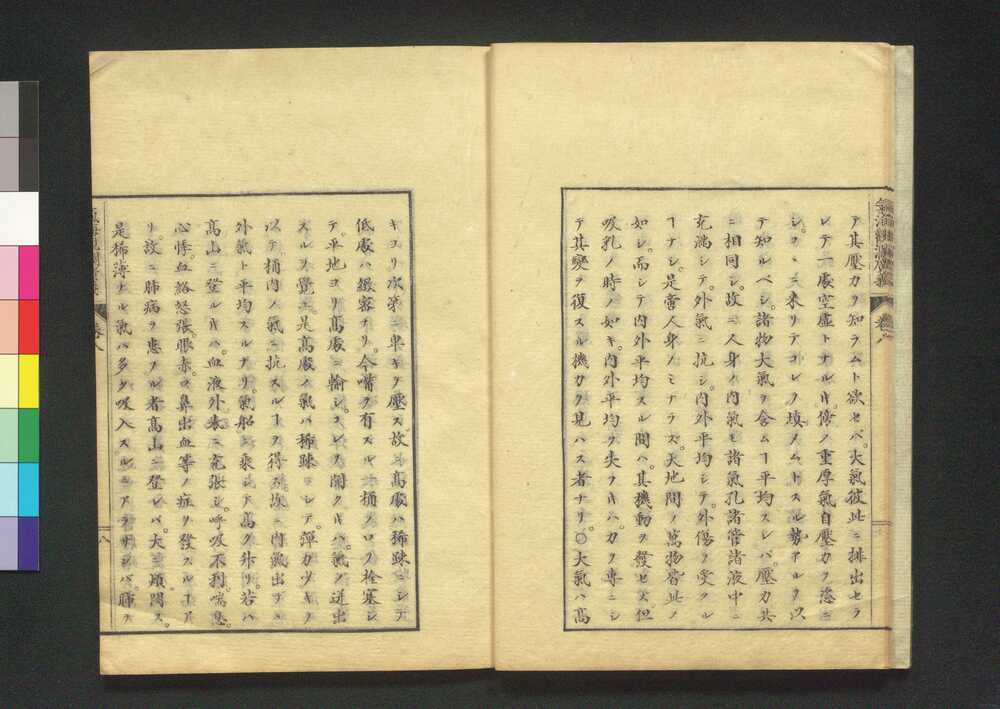 テ其壓力ヲ知ラムト欲セバ。大氣彼此ニ排出セラ
レテ一處空虛トナルヰ。傍ノ重厚氣自壓力ヲ恣ニ
シ。コヽニ來リテコレヲ塡メムトスル勢アルヲ以
テ知ルベシ。諸物大氣ヲ含ムヿ平均スレバ。壓力共
ニ相同シ。故ニ人身ノ内氣モ諸氣孔諸管諸液中ニ
充滿シテ。外氣ニ抗シ。内外平均シテ。外傷ヲ受クル
ヿナシ。是啻人身ノミナラズ。天地間ノ萬物皆此ノ
如シ。而シテ内外平均スル間ハ。其機動ヲ發セズ。但
吸乳ノ時ノ如キ。内外平均ヲ失フヰハ。力ヲ專ニシ
テ其變ヲ復スル機力ヲ見ハス者ナリ。○大氣ハ高
キヨリ次第ニ卑キヲ壓ス故ニ高處ハ稀疎ニシテ
低處ハ緻密ナリ。今嘴ヲ有スル桶ノ口ヲ栓塞シ
テ。平地ヨリ高處ニ輸シ。コレヲ開クヰハ。氣ノ迸出
スルヲ覺ユ。是高處ノ氣ハ稀疎ニシテ。彈力少キヲ
以テ。桶内ノ氣ニ抗スルヿヲ得ズ。故ニ内氣出デヽ
外氣ト平均スルナリ。氣船ニ乘シテ高ク升リ。若ハ
高山ニ登ルヰハ。血液外表ニ充張シ。呼吸不利。喘息。
心悸。血絡怒張。眼赤ク。鼻出血等ノ症ヲ發スルヿア
リ。故ニ肺病ヲ患フル者高山ニ登レバ。大ニ煩悶ス。
是稀薄ナル氣ハ多ク吸入スルニアラザレバ。肺ヲ
卷八
八